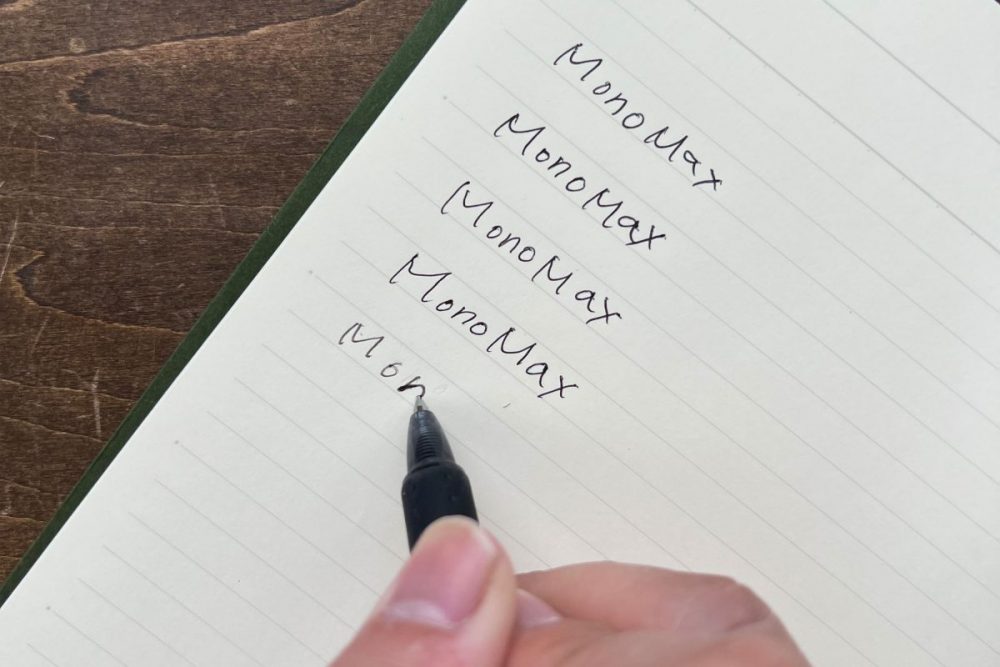 MonoMax
MonoMax
MonoMax
MonoMax
Mon